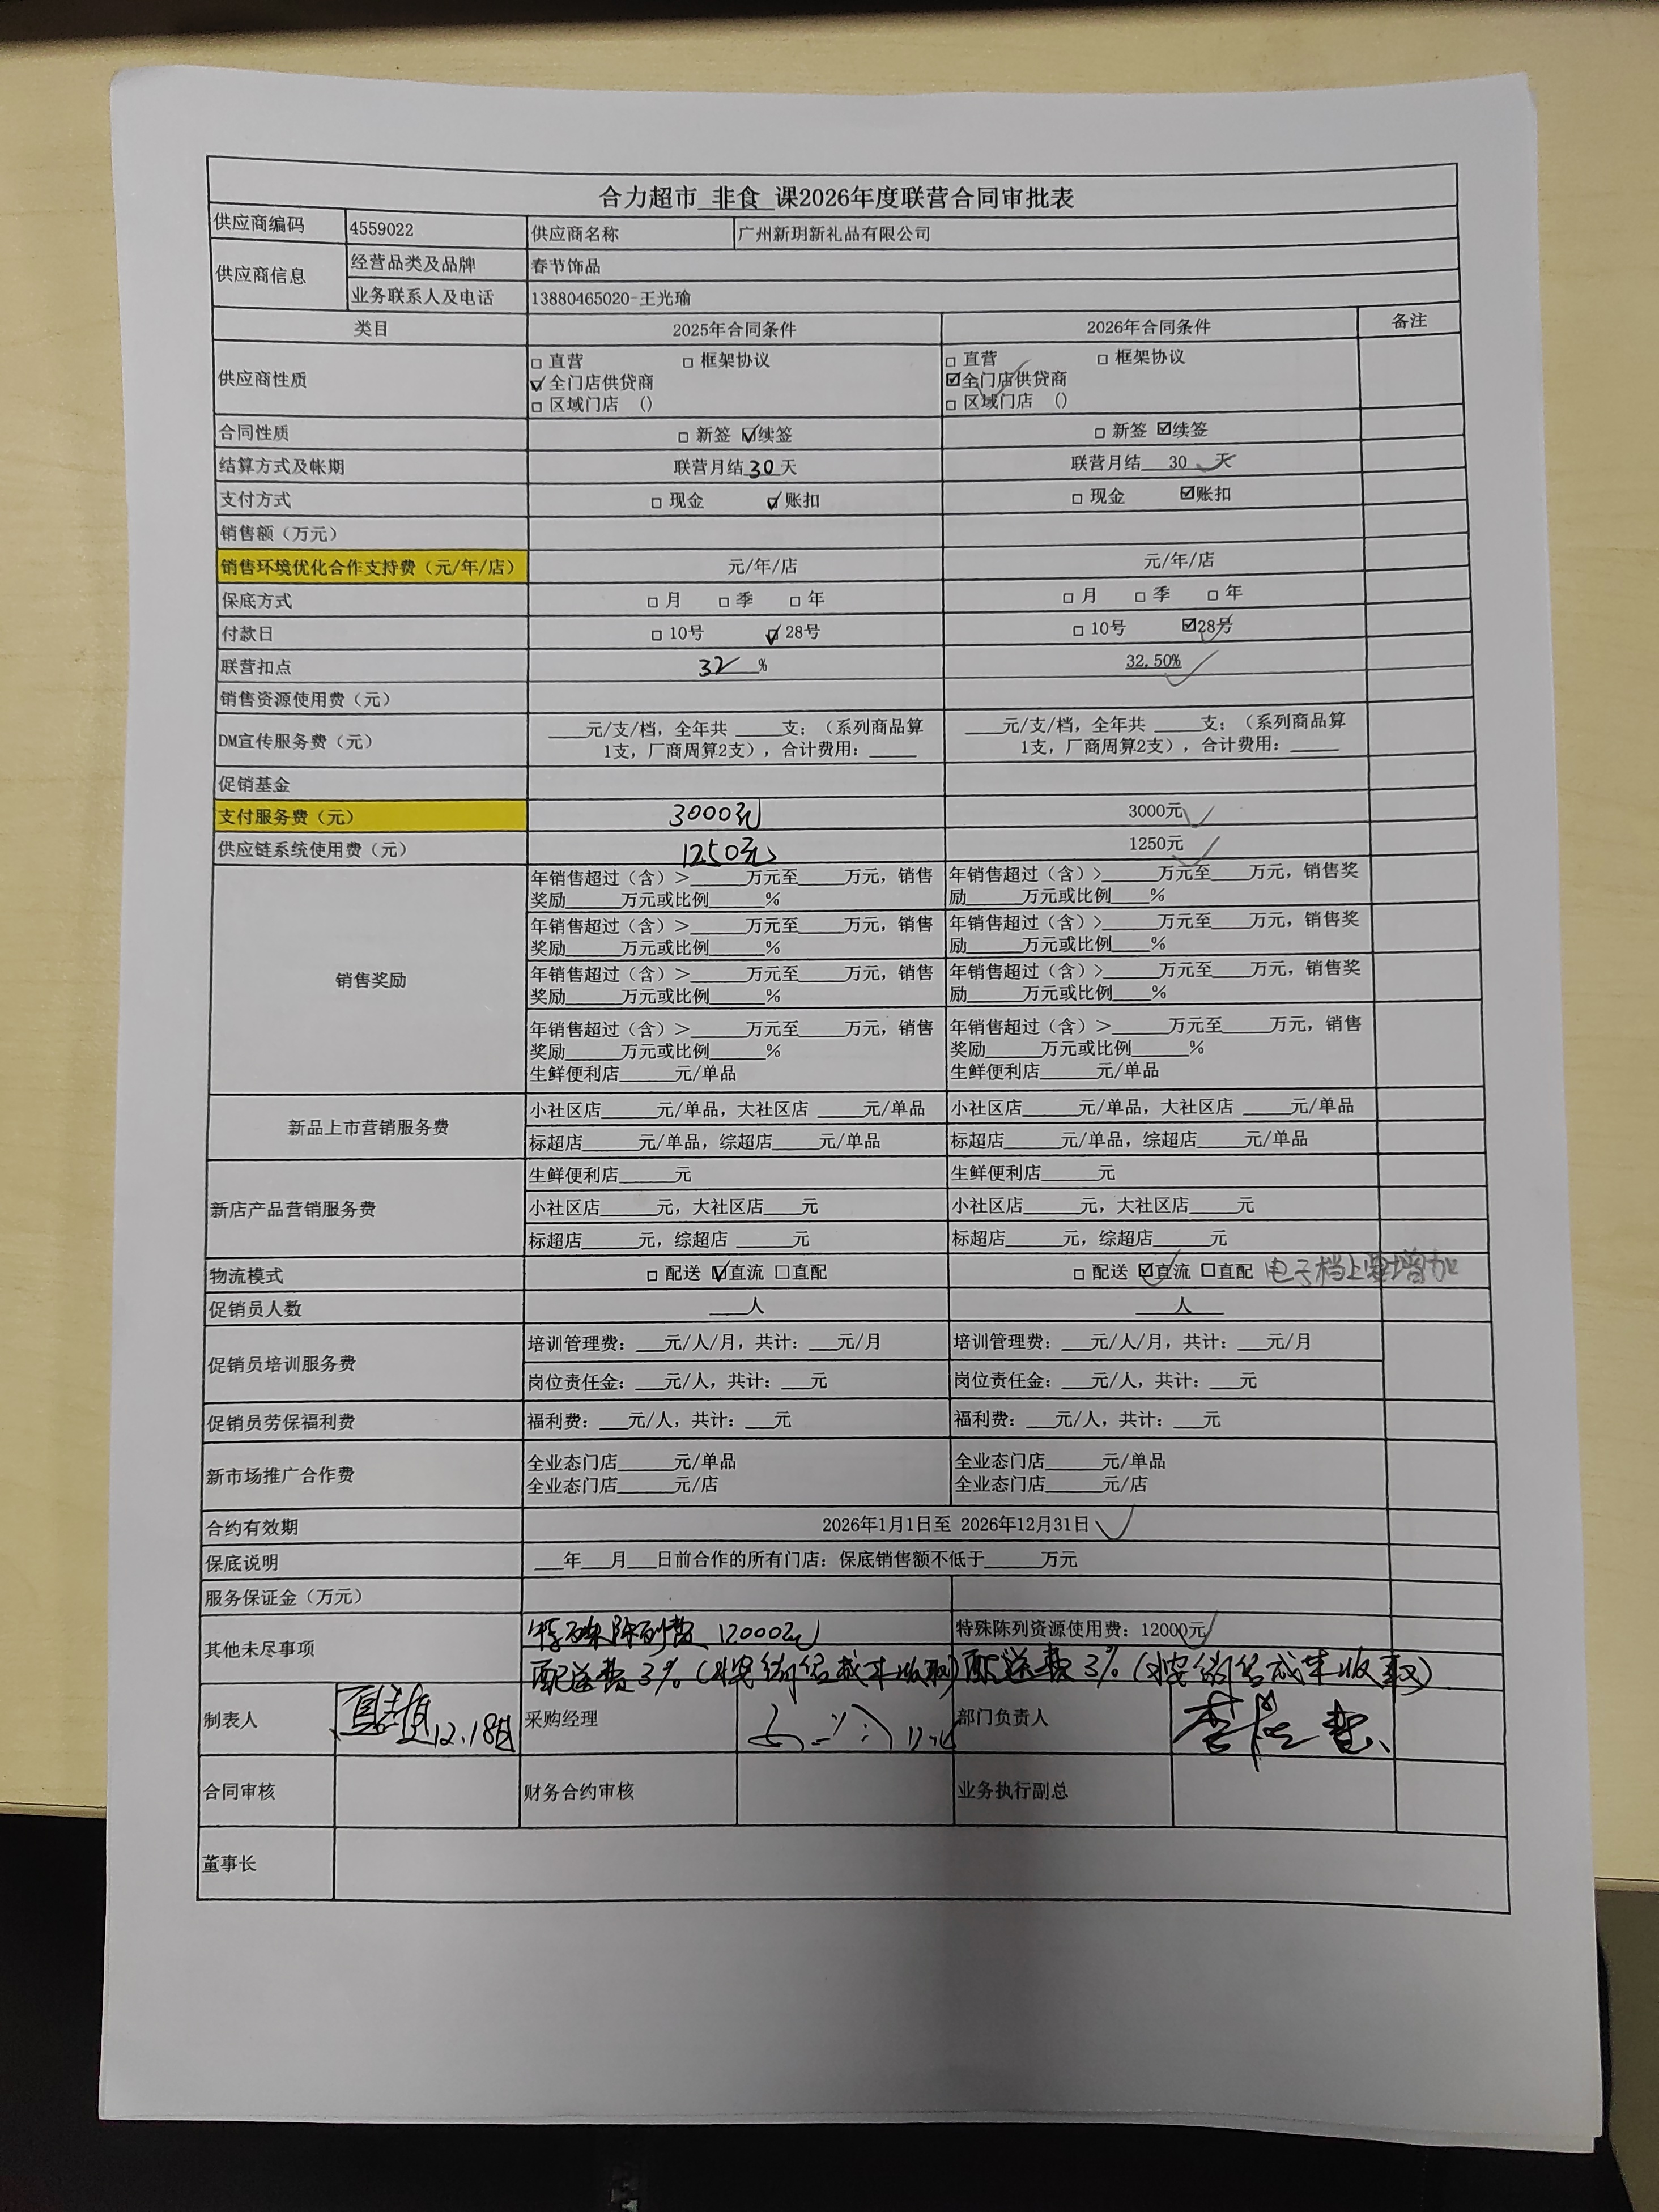 合力超市 非食 课2026年度联营合同审批表
供应商编码 4559022 供应商名称 广州新玥新礼品有限公司
供应商信息 经营品类及品牌 春节饰品
业务联系人及电话 13880465020-王光瑜
类目 2025年合同条件 2026年合同条件 备注
供应商性质 □ 直营 □ 框架协议 □ 直营 □ 框架协议
☑ 全门店供贷商 ☑全门店供贷商
□ 区域门店 () □ 区域门店 ()
合同性质 □ 新签 ☑续签 □ 新签 ☑续签
结算方式及帐期 联营月结 30 天 联营月结 30 天
支付方式 □ 现金 ☑账扣 □ 现金 ☑账扣
销售额（万元）
销售环境优化合作支持费（元/年/店） 元/年/店 元/年/店
保底方式 □ 月 □ 季 □ 年 □ 月 □ 季 □ 年
付款日 □ 10号 ☑ 28号 □ 10号 ☑28号
联营扣点 32 % 32.50%
销售资源使用费（元）
DM宣传服务费（元） ____元/支/档，全年共 _____支；（系列商品算 ____元/支/档，全年共 _____支；（系列商品算
1支，厂商周算2支），合计费用：_____ 1支，厂商周算2支），合计费用：_____
促销基金
支付服务费（元） 3000元 3000元
供应链系统使用费（元） 1250元 1250元
销售奖励
年销售超过（含）>______万元至_____万元，销售 年销售超过（含）>______万元至____万元，销售奖
奖励______万元或比例______% 励______万元或比例____%
年销售超过（含）>______万元至_____万元，销售 年销售超过（含）>______万元至____万元，销售奖
奖励______万元或比例______% 励______万元或比例____%
年销售超过（含）>______万元至_____万元，销售 年销售超过（含）>______万元至____万元，销售奖
奖励______万元或比例______% 励______万元或比例____%
年销售超过（含）>______万元至_____万元，销售 年销售超过（含）>______万元至_____万元，销售
奖励______万元或比例______% 奖励______万元或比例______%
生鲜便利店______元/单品 生鲜便利店______元/单品
新品上市营销服务费
小社区店______元/单品，大社区店 _____元/单品 小社区店______元/单品，大社区店 _____元/单品
标超店______元/单品，综超店_____元/单品 标超店______元/单品，综超店_____元/单品
新店产品营销服务费
生鲜便利店______元 生鲜便利店______元
小社区店______元，大社区店____元 小社区店______元，大社区店____元
标超店______元，综超店 ______元 标超店______元，综超店______元
物流模式 □ 配送 ☑直流 □直配 □ 配送 ☑直流 □直配 电子档上要增加
促销员人数 ____人 ____人___
促销员培训服务费
培训管理费：___元/人/月，共计：___元/月 培训管理费：___元/人/月，共计：___元/月
岗位责任金：___元/人，共计：___元 岗位责任金：___元/人，共计：___元
促销员劳保福利费 福利费：___元/人，共计：___元 福利费：___元/人，共计：___元
新市场推广合作费
全业态门店______元/单品 全业态门店______元/单品
全业态门店______元/店 全业态门店______元/店
合约有效期 2026年1月1日至 2026年12月31日
保底说明 ___年___月___日前合作的所有门店：保底销售额不低于______万元
服务保证金（万元）
其他未尽事项 特殊陈列费 12000元 特殊陈列资源使用费：12000元
配送费3%（按销售成本收取） 配送费3%（按销售成本收取）
制表人 12.18日 采购经理 部门负责人
合同审核 财务合约审核 业务执行副总
董事长